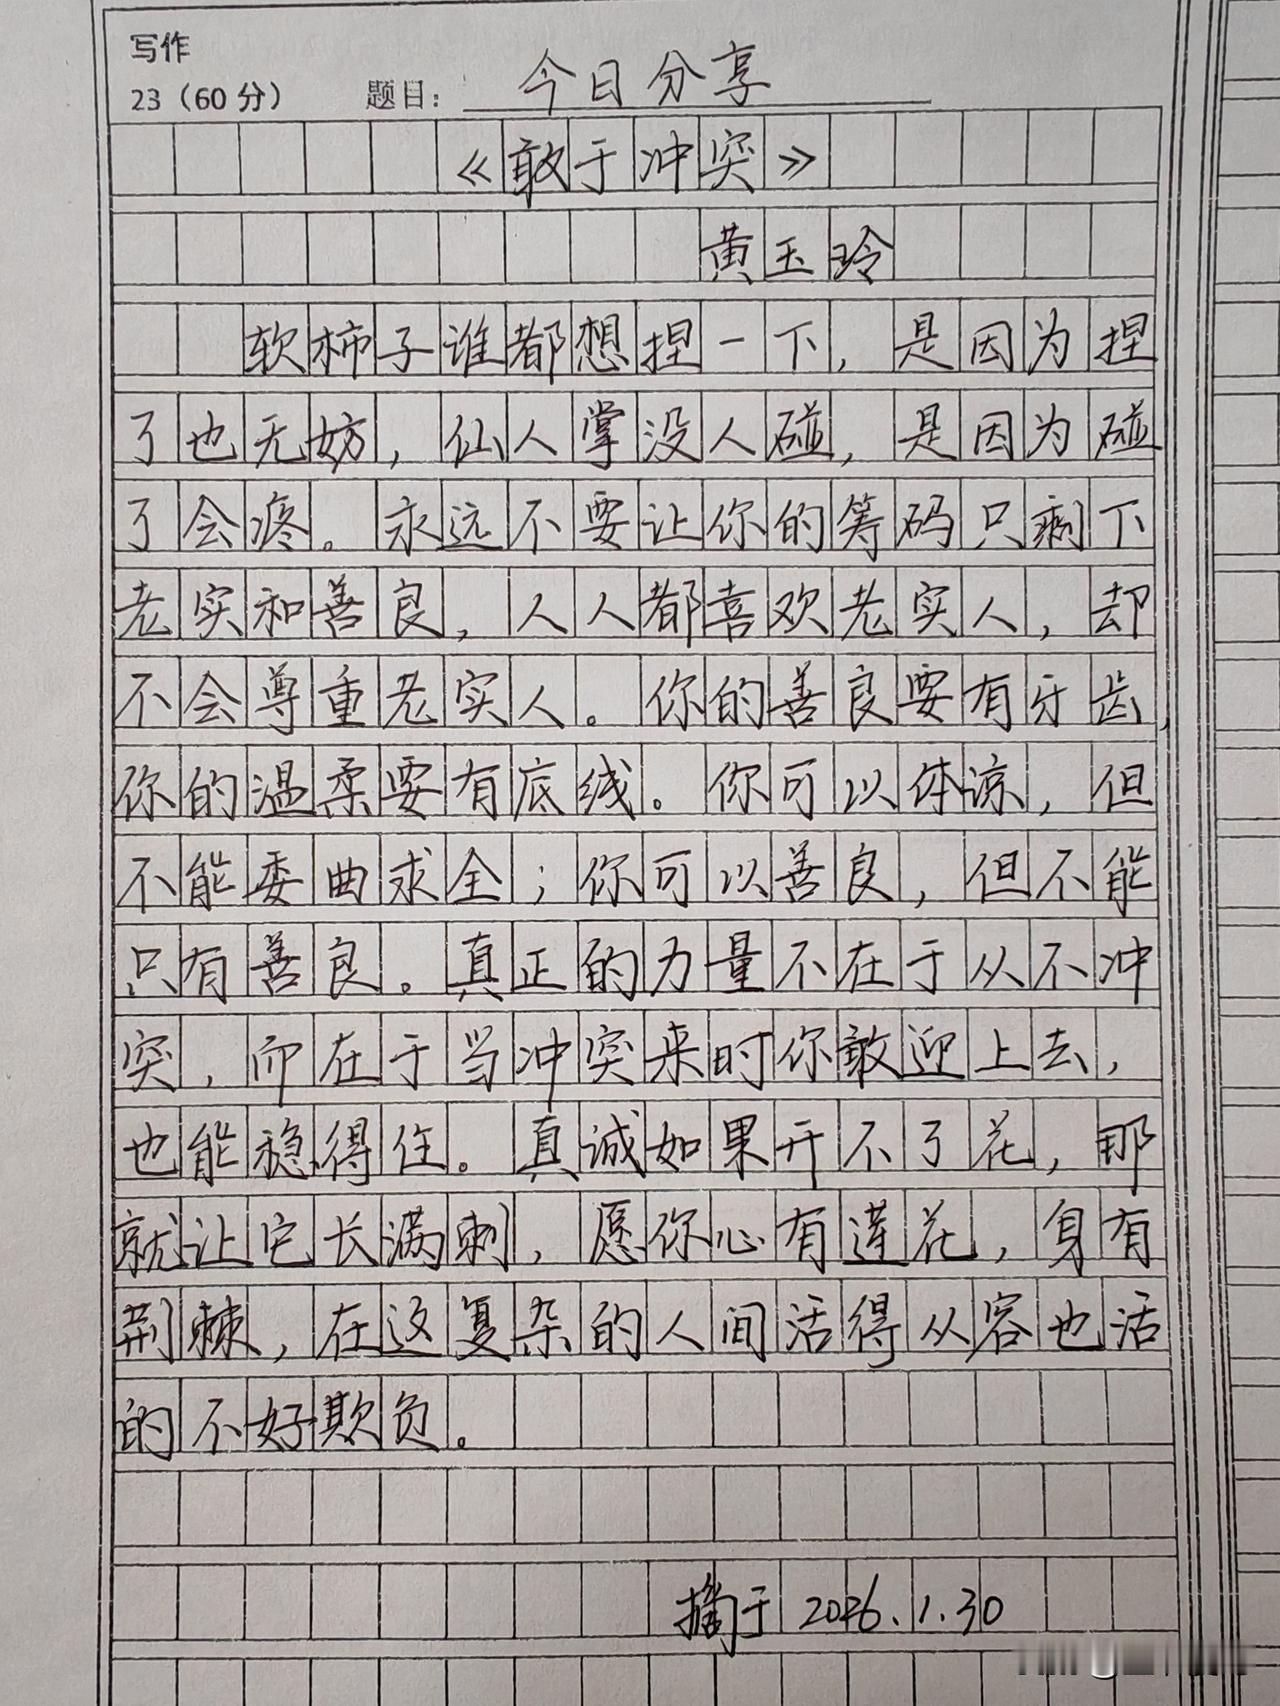 写作
23（60分） 题目：今日分享
《敢于冲突》
黄玉玲
软柿子谁都想捏一下，是因为捏
了也无妨，仙人掌没人碰，是因为碰
了会疼。永远不要让你的筹码只剩下
老实和善良，人人都喜欢老实人，却
不会尊重老实人。你的善良要有牙齿，
你的温柔要有底线。你可以体谅，但
不能委曲求全；你可以善良，但不能
只有善良。真正的力量不在于从不冲
突，而在于当冲突来时你敢迎上去，
也能稳得住。真诚如果开不了花，那
就让它长满刺，愿你心有莲花，身有
荆棘，在这复杂的人间活得从容也活
的不好欺负。
摘于 2026.1.30